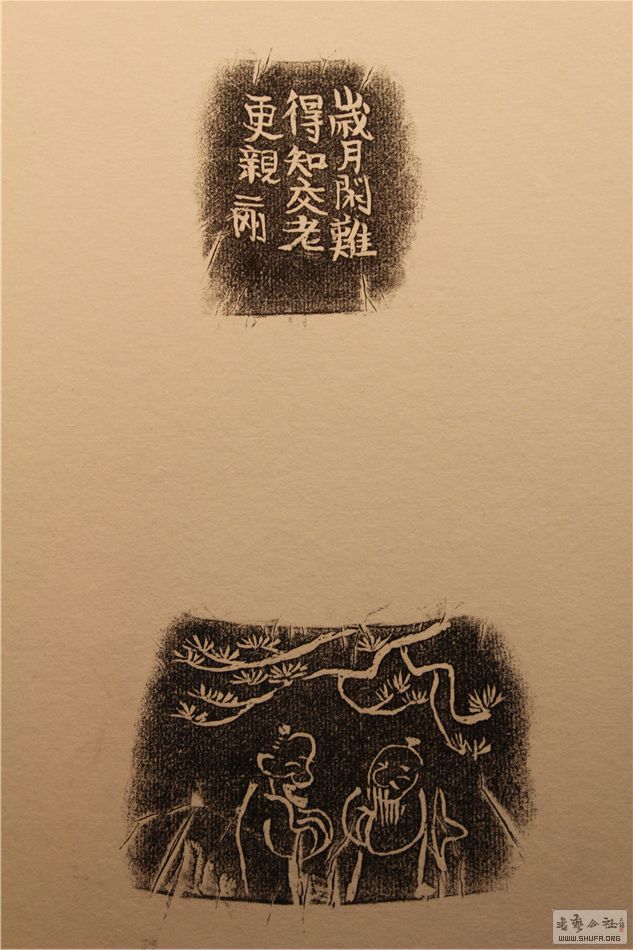 歲月閑難
得知交老
更親 二剛
WWW.SHUFA.ORG